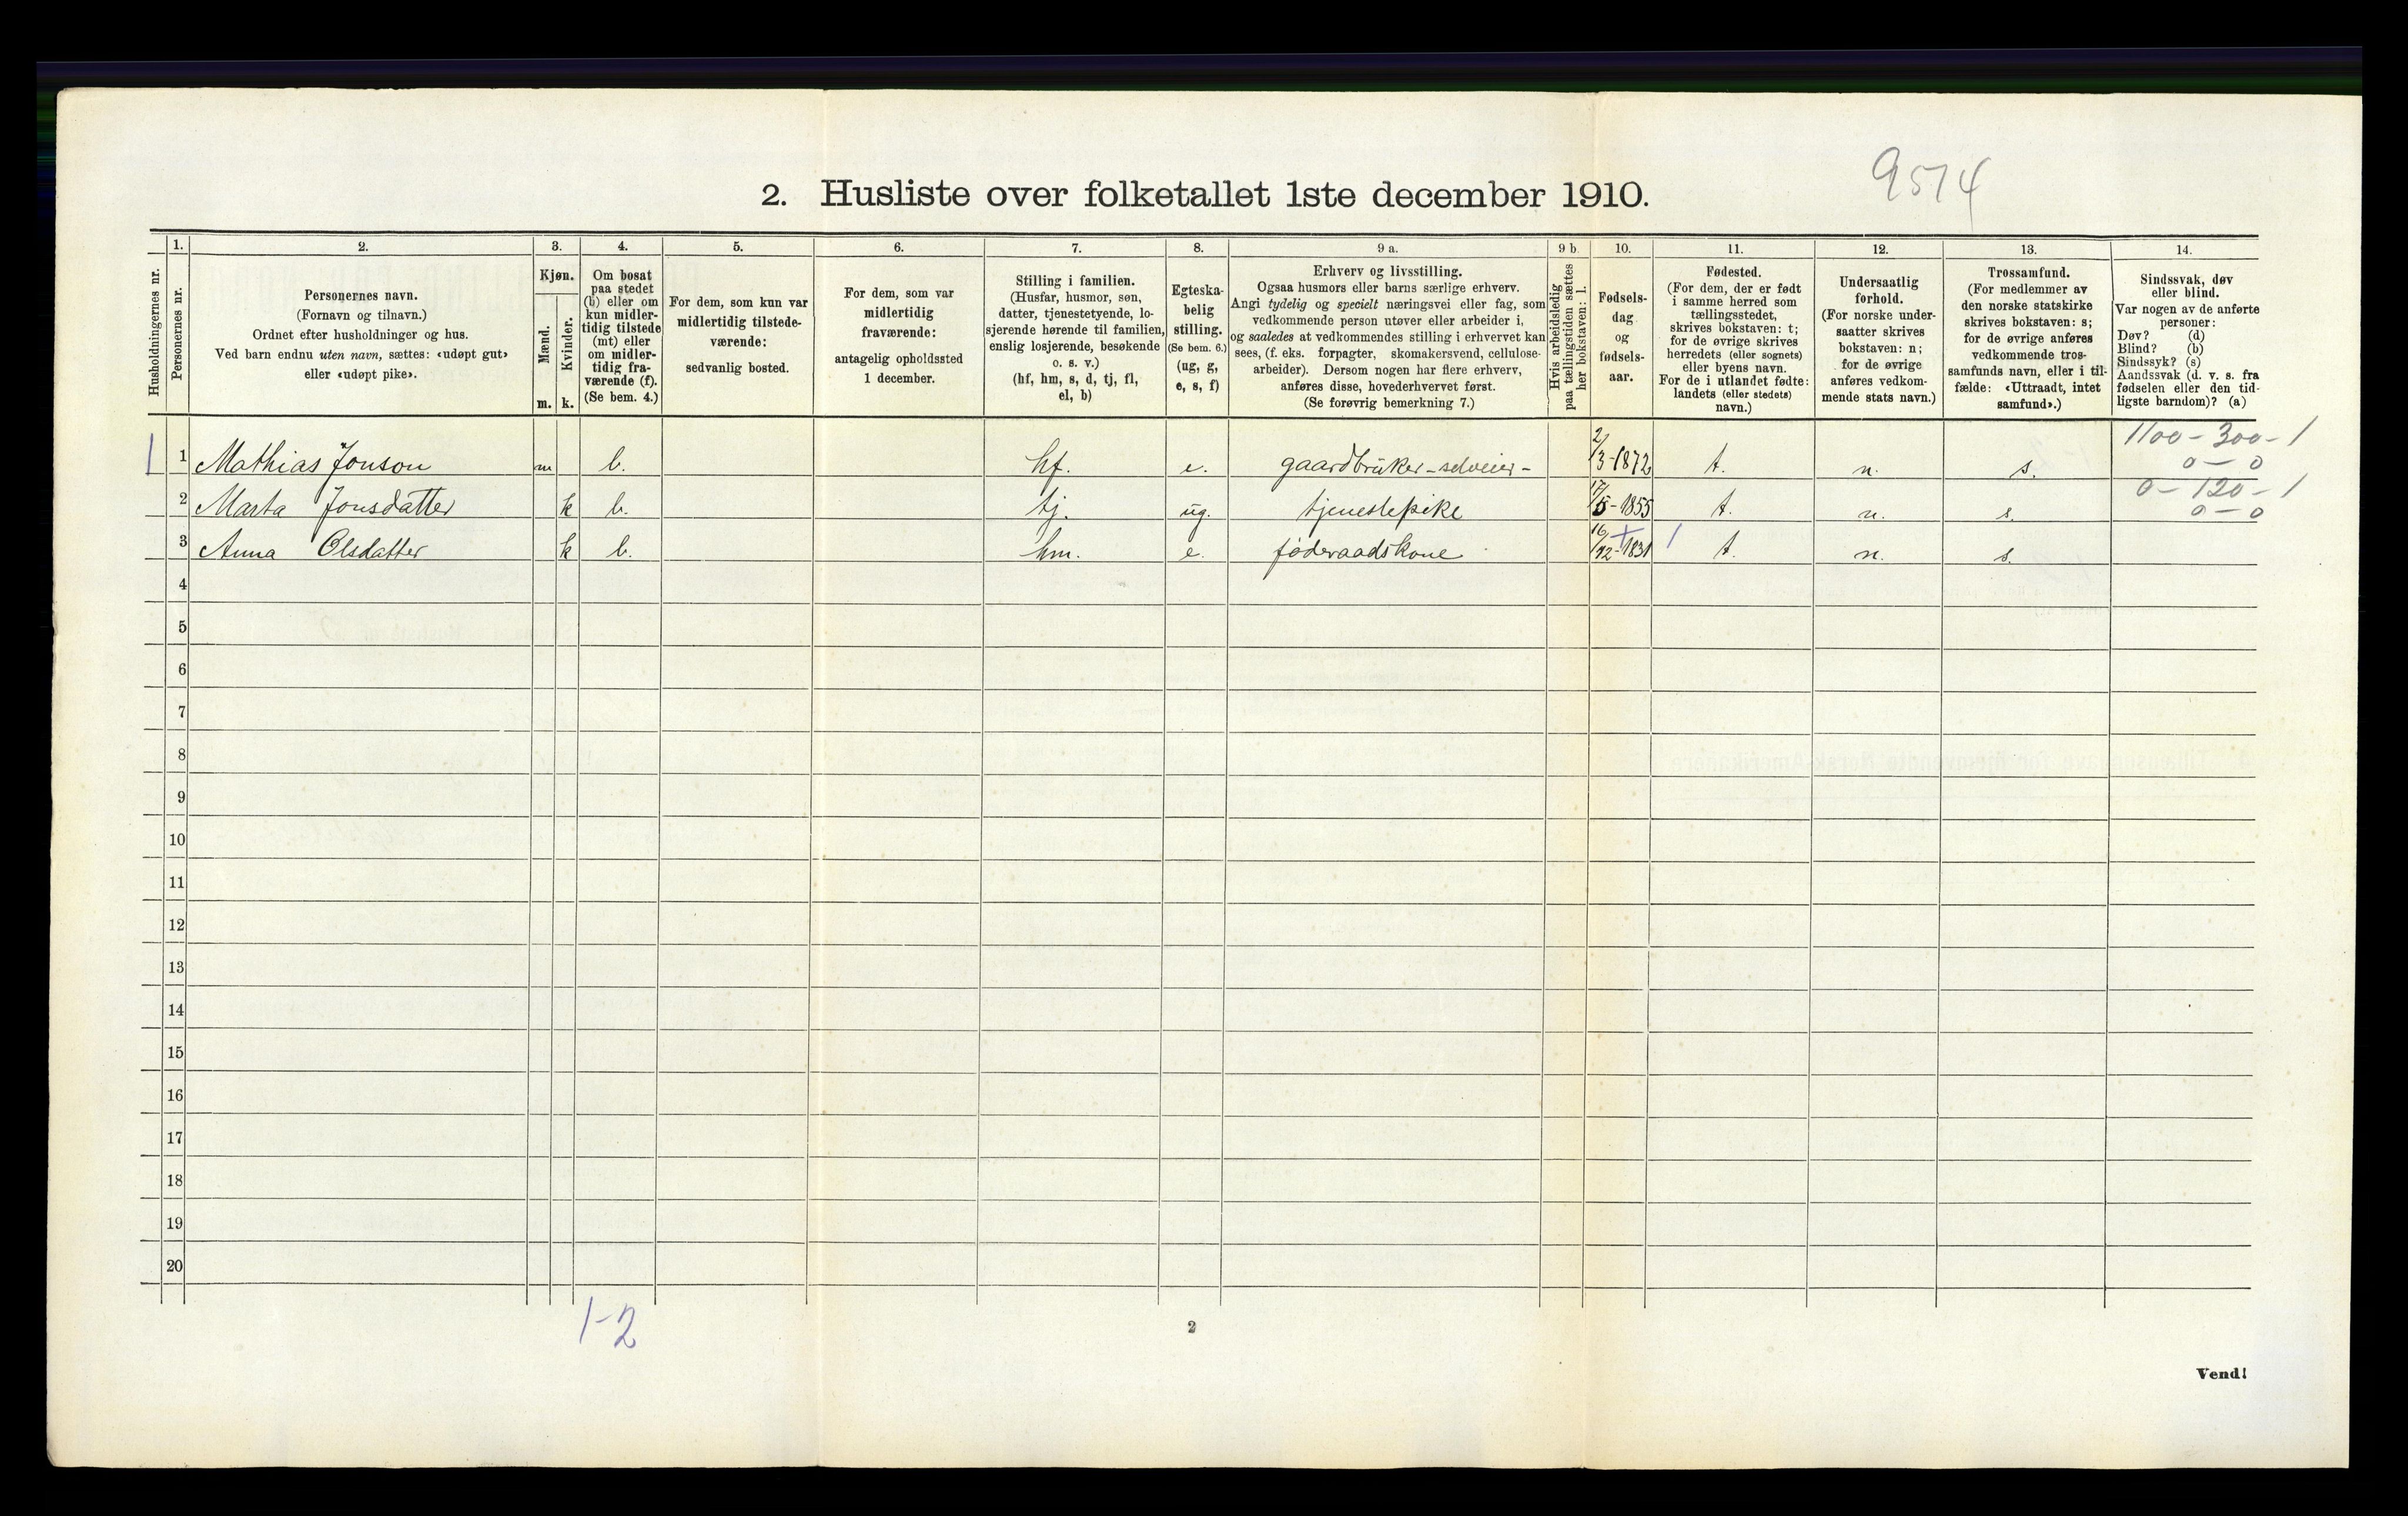 9574
2. Husliste over folketallet 1ste december 1910.
Husholdningernes nr.
1.
Personernes nr.
2.
Personernes navn.
(Fornavn og tilnavn.)
Ordnet efter husholdninger og hus.
Ved barn endnu uten navn, sættes: «udøpt gut»
eller «udøpt pike».
3.
Kjøn.
Mænd.
Kvinder.
m. k.
4.
Om bosat
paa stedet
(b) eller om
kun midler-
tidig tilstede
(mt) eller
om midler-
tidig fra-
værende (f).
(Se bem. 4.)
5.
For dem, som kun var
midlertidig tilstede-
værende:
sedvanlig bosted.
6.
For dem, som var
midlertidig
fraværende:
antagelig opholdssted
1 december.
7.
Stilling i familien.
(Husfar, husmor, søn,
datter, tjenestetyende, lo-
sjerende hørende til familien,
enslig losjerende, besøkende
o. s. v.)
(hf, hm, s, d, tj, fl,
el, b)
8.
Egteska-
belig
stilling.
(Se bem. 6.)
(ug, g,
e, s, f)
9 a.
Erhverv og livsstilling.
Ogsaa husmors eller barns særlige erhverv.
Angi tydelig og specielt næringsvei eller fag, som
vedkommende person utøver eller arbeider i,
og saaledes at vedkommendes stilling i erhvervet kan
sees, (f. eks. forpagter, skomakersvend, cellulose-
arbeider). Dersom nogen har flere erhverv,
anføres disse, hovederhvervet først.
(Se forøvrig bemerkning 7.)
9 b
Hvis arbeidsledig
paa tællingstiden sættes
her bokstaven: l.
10.
Fødsels-
dag
og
fødsels-
aar.
11.
Fødested.
(For dem, der er født
i samme herred som
tællingsstedet,
skrives bokstaven: t;
for de øvrige skrives
herredets (eller sognets)
eller byens navn.
For de i utlandet fødte:
landets (eller stedets)
navn.)
12.
Undersaatlig
forhold.
(For norske under-
saatter skrives
bokstaven: n;
for de øvrige
anføres vedkom-
mende stats navn.)
13.
Trossamfund.
(For medlemmer av
den norske statskirke
skrives bokstaven: s;
for de øvrige anføres
vedkommende tros-
samfunds navn, eller i til-
fælde: «Uttraadt, intet
samfund».)
14.
Sindssvak, døv
eller blind.
Var nogen av de anførte
personer:
Døv? (d)
Blind? (b)
Sindssyk? (s)
Aandssvak (d. v. s. fra
fødselen eller den tid-
ligste barndom)? (a)
1 1 Mathias Jonson m b. hf. e. gaardbruker - selveier - 2/3-1872 t. n. s. 1100 - 300 - 1
0 - 0
2 Marta Jonsdatter k b. tj. ug. tjenestepike 17/5-1855 t. n. s. 0 - 120 - 1
0 - 0
3 Anna Olsdatter k b. hm. e. föderaadskone 16/12-1831 t. n. s.
4
5
6
7
8
9
10
11
12
13
14
15
16
17
18
19
20
1-2
2
Vend!